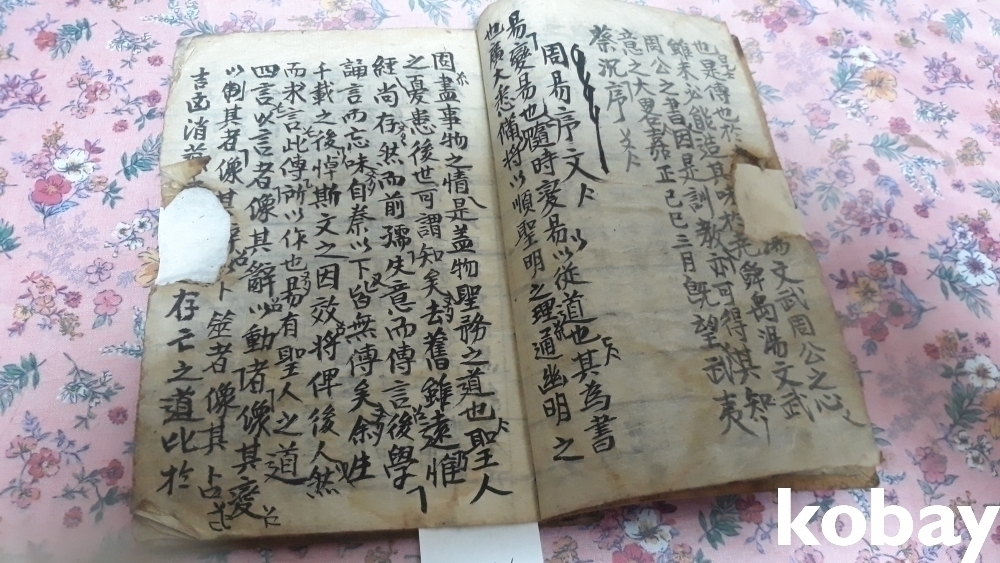 也是傳也於 湯文武周公之心
雖未必能造其 於堯舜禹湯文武
周公之書因是訓教亦可得其知
意之大畧嘉正己巳三月旣望武夷
蔡沉序
周易序文
易變易也隨時變易以從道也其為書
也廣大悉備將以順聖明之理通幽明之
因盡事物之情是盖物聖務之道也聖人
之憂患後世可謂知矣去舊雖遠惟
經尚存然而前孺失意而傳言後學
誦言而忘味自秦以下皆無傳矣余生
千載之後悼斯文之因效將俾後人然
而求言此傳所以作也易有聖人之道
四言以言者像其辭以動者像其変
以制其者像其 卜筮者像其占
吉凶消 存亡之道比於
kobay